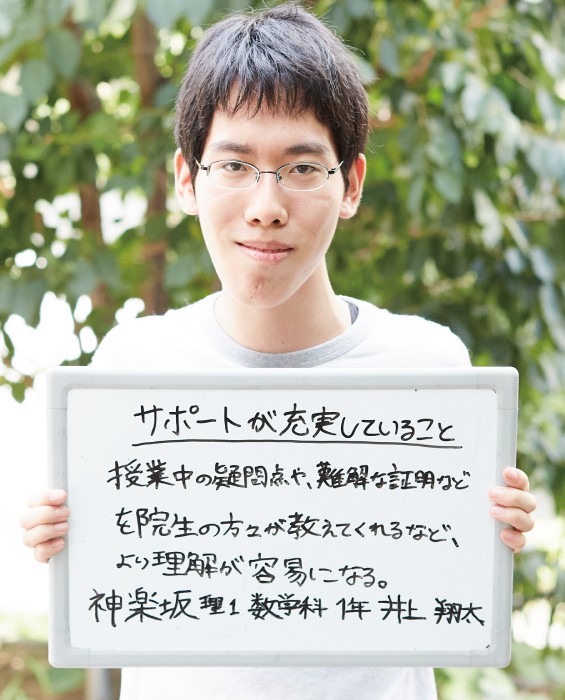 サポートが充実していること
授業中の疑問点や、難解な証明など
を院生の方々が教えてくれるなど、
より理解が容易になる。
神楽坂 理1 数学科 1年 井上 翔太